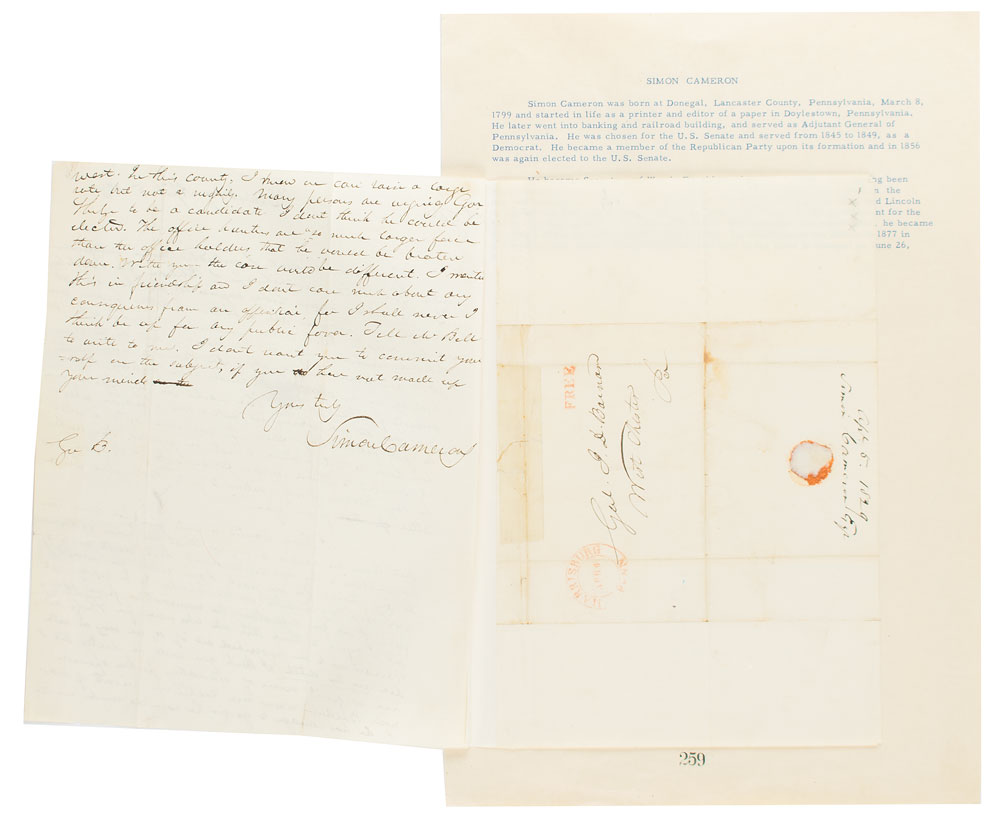 SIMON CAMERON
Simon Cameron was born at Donegal, Lancaster County, Pennsylvania, March 8,
1799 and started in life as a printer and editor of a paper in Doylestown, Pennsylvania.
He later went into banking and railroad building, and served as Adjutant General of
Pennsylvania. He was chosen for the U.S. Senate and served from 1845 to 1849, as a
Democrat. He became a member of the Republican Party upon its formation and in 1856
was again elected to the U.S. Senate.
been
the
Lincoln
for the
he became
1877 in
June 26,
west. In this county, I know we can raise a large
vote but not a majority. Many persons are urging Gov
to be a candidate. I dont think he could be
elected. The office hunters are so much larger force
than the office holders that he would be beaten
down. With you the case would be different. I mention
this in friendship and I dont care much about any
consequences from an for I shall never I
think be up for any public favor. Tell Mr Bell
to write to me. I dont want you to commit your
-self on the subject, if you have not made up
your mind
Yours truly
Simon Cameron
Gen B.
FREE
Gnl. J D. Barnard
West Chester
Pa
HARRISBURG
Pa.
1849
Simon Cameron
259